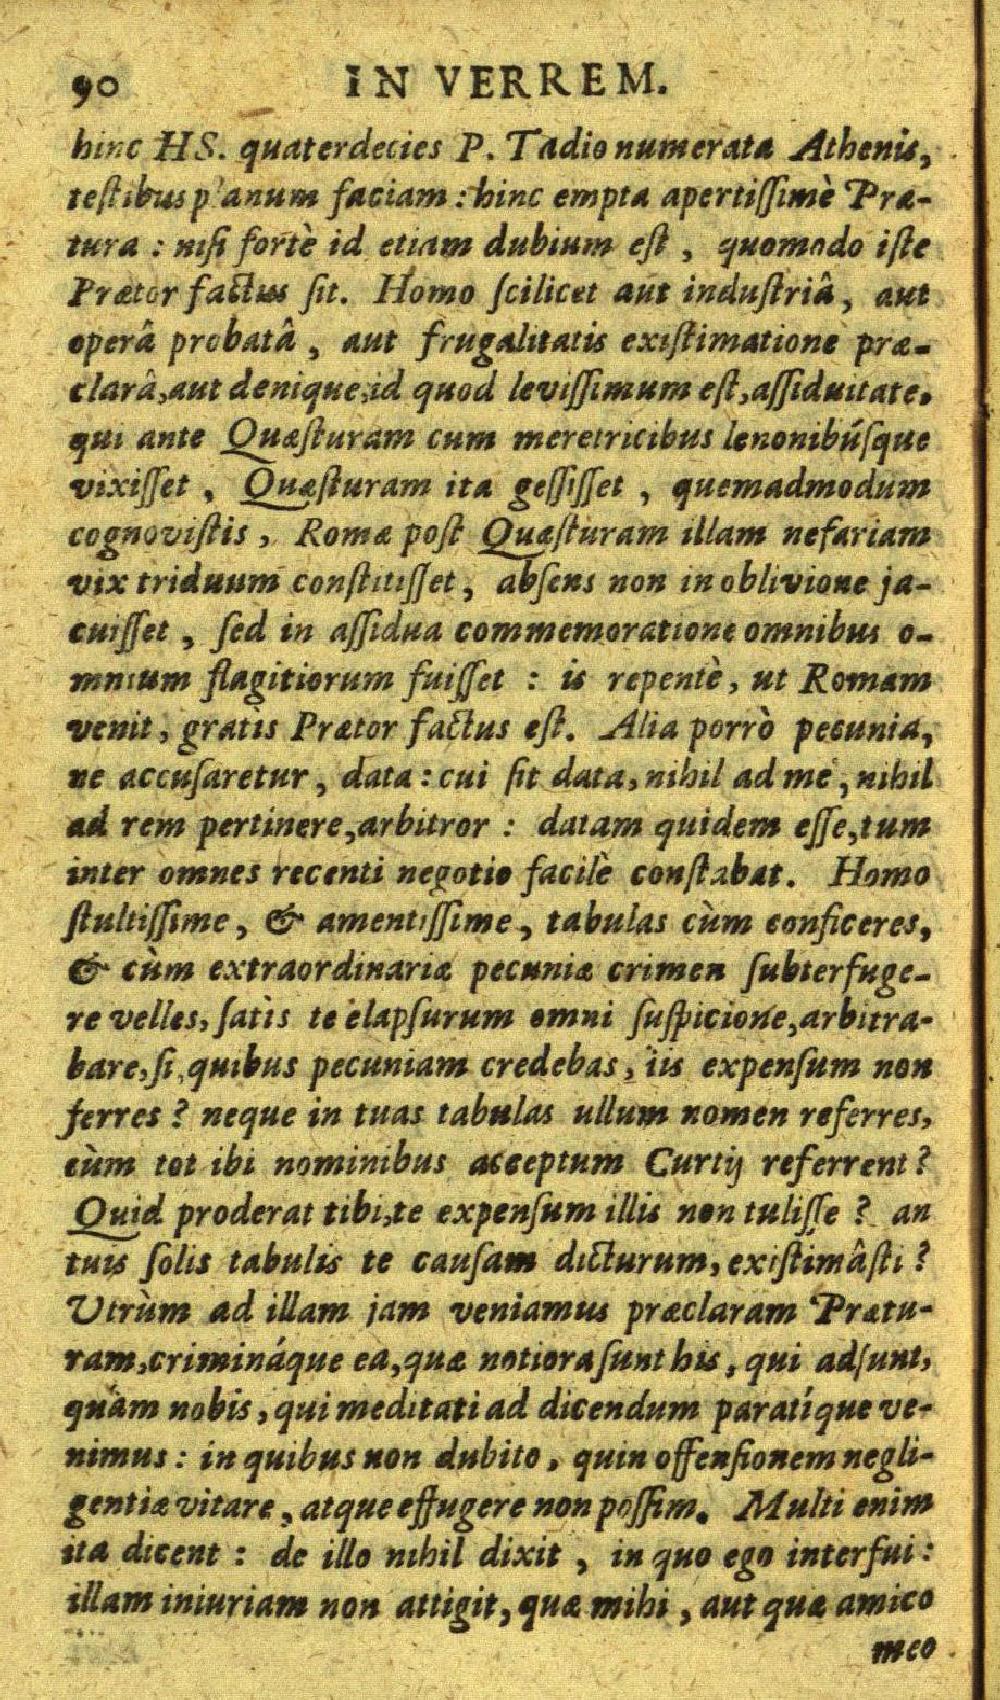 90 IN VERREM.
hinc HS. quaterdecies P. Tadio numerata Athenis,
teſtibus p'anum faciam : hinc empta apertiſſimè Præ-
tura : niſi fortè id etiam dubium eſt , quomodo iſte
Prætor factus ſit. Homo ſcilicet aut induſtriâ, aut
operâ probatâ , aut frugalitatis exiſtimatione præ-
clarâ,aut denique,id quod leviſſimum eſt,aſſiduitate.
qui ante Quæſturam cum meretricibus lenonibúſque
vixiſſet , Quæſturam ita geſſiſſet , quemadmodum
cognoviſtis , Romæ poſt Quæſturam illam nefariam
vix triduum conſtitiſſet, abſens non in oblivione ja-
cuiſſet , ſed in aſſidua commemoratione omnibus o-
mnium flagitiorum fuiſſet : is repentè, ut Romam
venit, gratìs Prætor factus eſt. Alia porrò pecunia,
ne accuſaretur , data : cui ſit data, nihil ad me , nihil
ad rem pertinere,arbitror : datam quidem eſſe,tum
inter omnes recenti negotio facilè conſtabat. Homo
ſtultiſſime, & amentiſſime, tabulas cùm conficeres,
& cùm extraordinariæ pecuniæ crimen ſubterfuge-
re velles, ſatìs te elapſurum omni ſuſpicione,arbitra-
bare,ſi,quibus pecuniam credebas, iis expenſum non
ferres ? neque in tuas tabulas ullum nomen referres,
cùm tot ibi nominibus acceptum Curtij referrent ?
Quid proderat tibi,te expenſum illis non tuliſſe ? an
tuis ſolis tabulis te cauſam dicturum, exiſtimâſti ?
Utrùm ad illam jam veniamus præclaram Prætu-
ram,crimináque ea,quæ notiora ſunt his , qui adſunt,
quàm nobis , qui meditati ad dicendum paratíque ve-
nimus : in quibus non dubito , quin offenſionem negli-
gentiæ vitare , atque effugere non poſſim. Multi enim
ita dicent : de illo nihil dixit , in quo ego interfui :
illam iniuriam non attigit, quæ mihi , aut quæ amico
meo